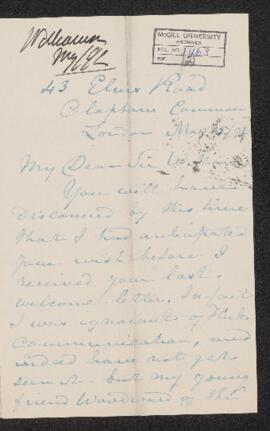 McGILL UNIVERSITY
ARCHIVES
ACC. NO. 1463
REF.
43 Elms Road
Clapham Common
London May
My Dear Sir William
You will have
discovered by this time
that I had anticipated
your wish before I
received your last
welcome letter. In fact
I was ignorant of
communication, and
indeed have not yet
seen it. but my young
friend Woodward of the